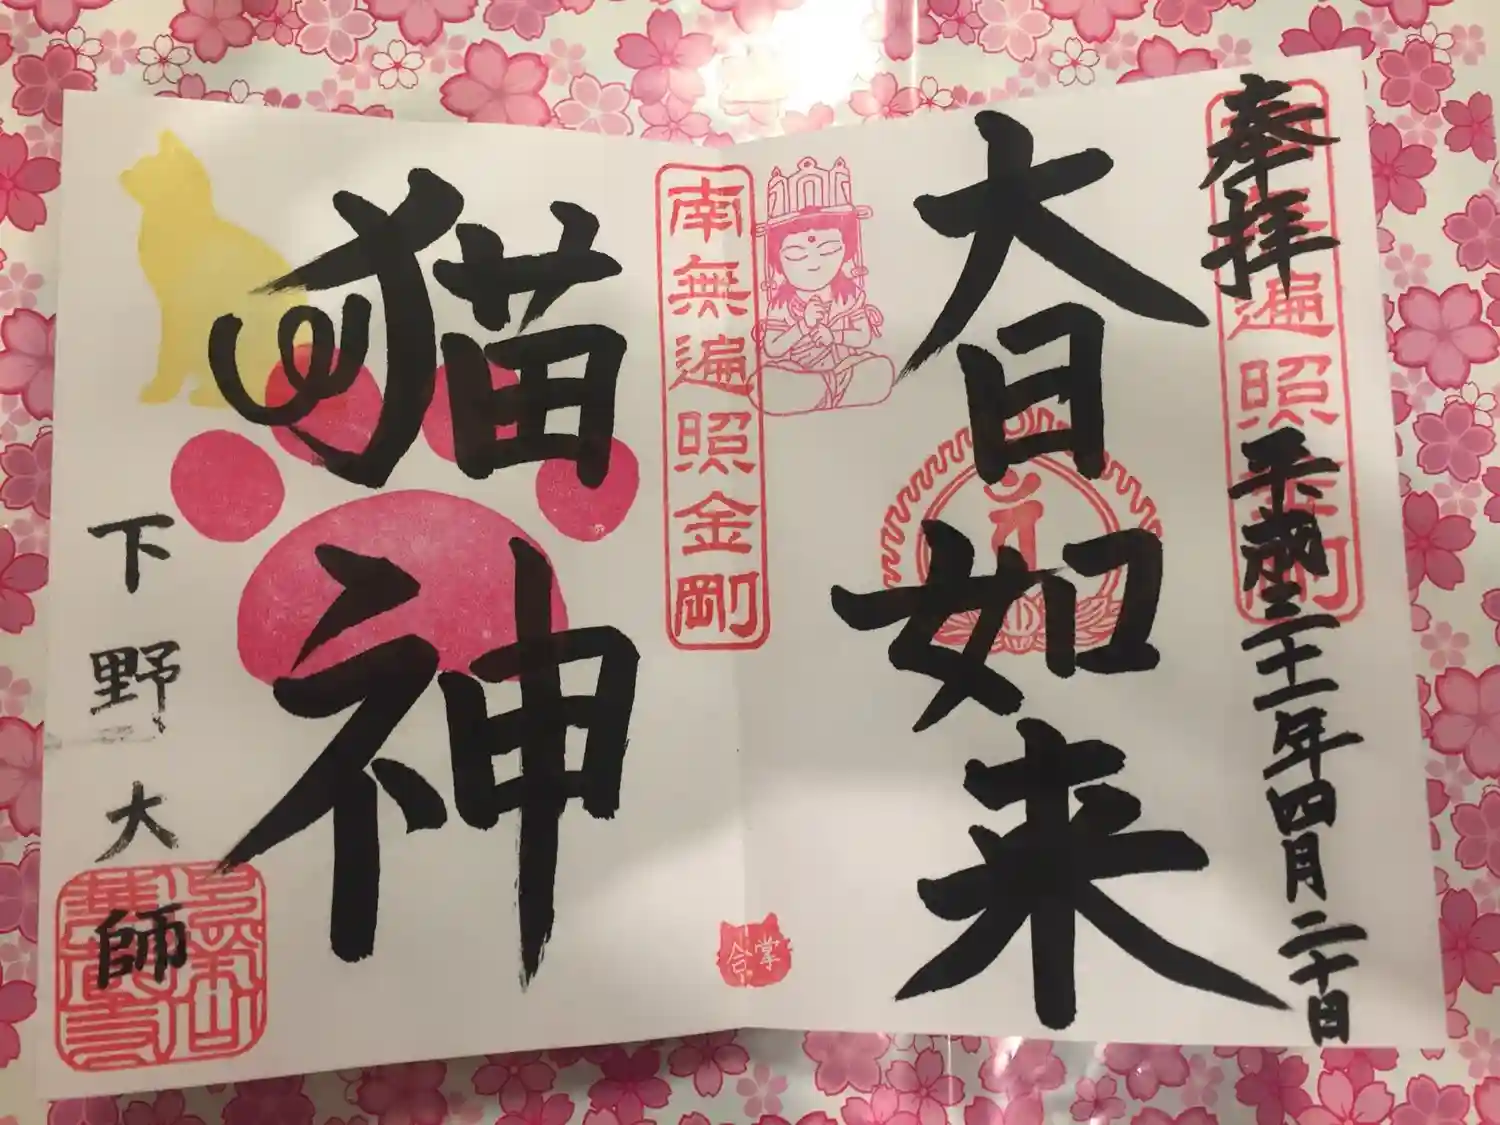 奉拝
南無遍照金剛
平成三十一年四月二十日
大日如来
南無遍照金剛
合掌
猫神
下野大師